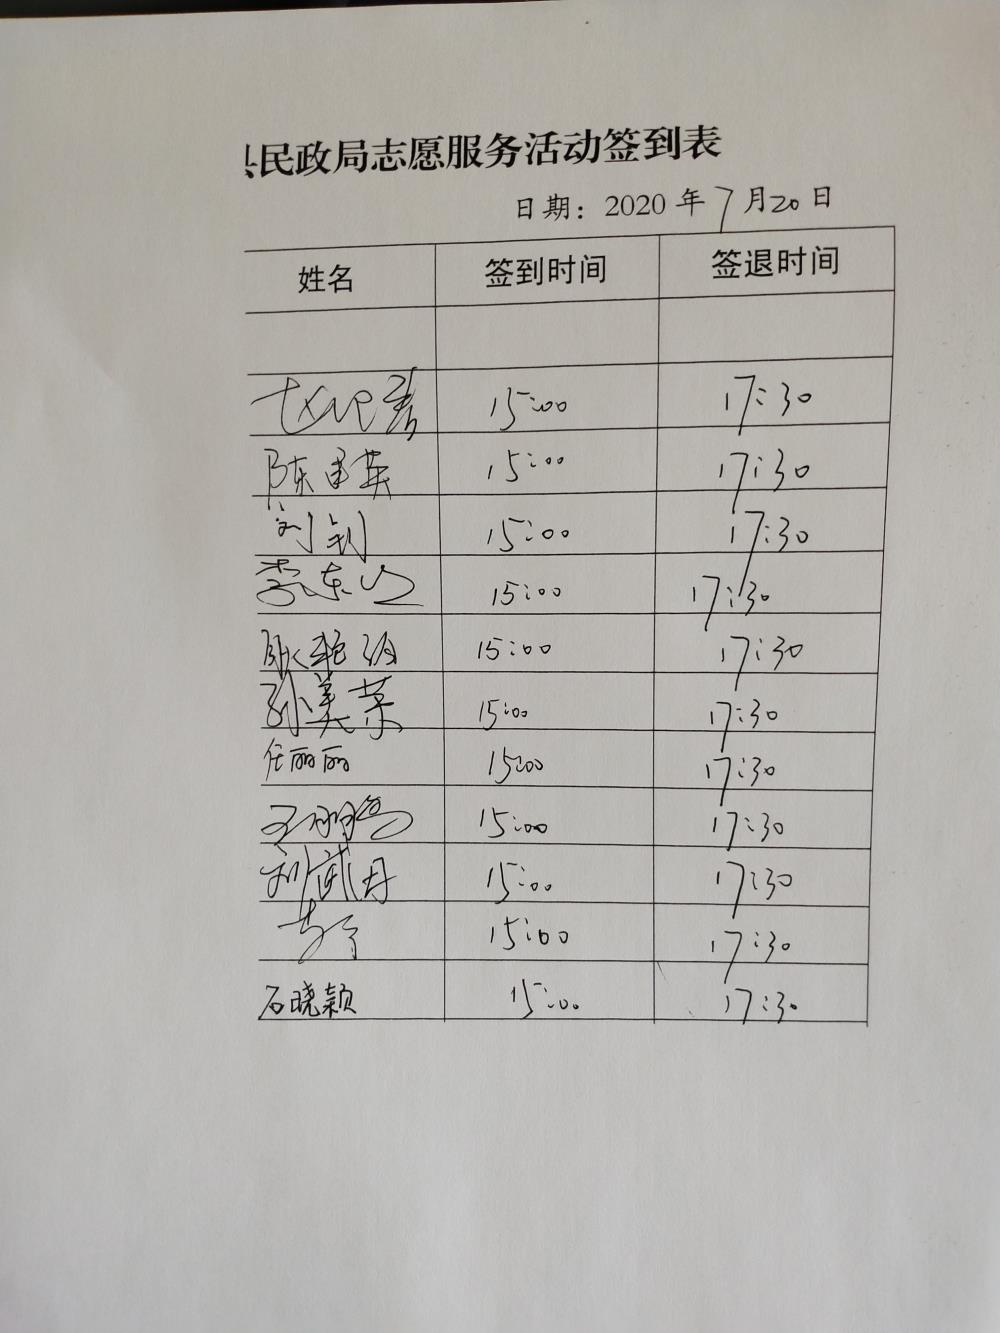 民政局志愿服务活动签到表
日期：2020年7月20日
姓名 签到时间 签退时间
15:00 17:30
陈建英 15:00 17:30
刘钊 15:00 17:30
李东 15:00 17:30
耿艳 15:00 17:30
孙美荣 15:00 17:30
任丽丽 15:00 17:30
王 15:00 17:30
刘斌丹 15:00 17:30
15:00 17:30
石晓颖 15:00 17:30